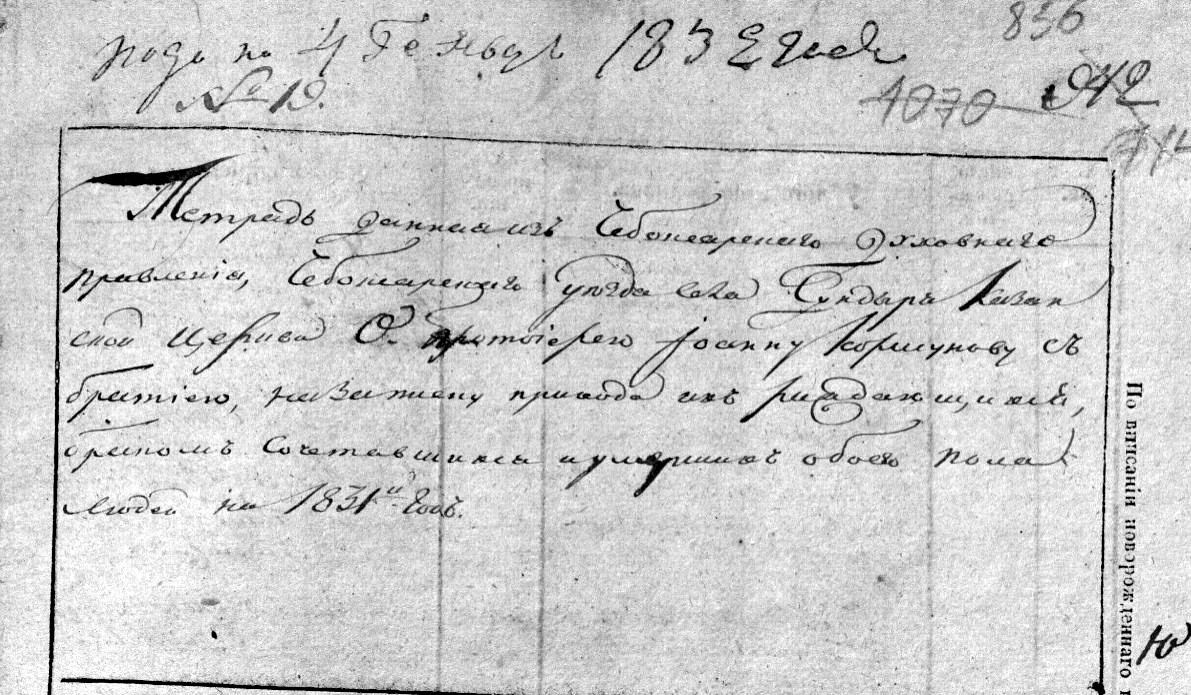 836
1832 года
№ 19.
4070 942
Тетрадь данная изъ Чебоксарскаго Духовнаго
правленія, Чебоксарскаго уѣзда села Сундыря Казан
ской Церкви О. протоіерею Іоанну Коршунову съ
братіею, на записку прихода ихъ раждающихся,
бракомъ сочетавшихся и умершихъ обоего пола
людей на 1831й годъ.
По вписаніи новорожденнаго